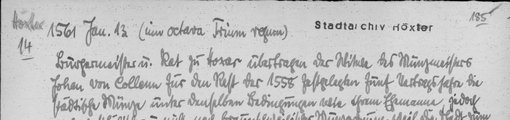 185
Höxter 1561 Jan. 13 (im octava Trium regum) Stadtarchiv Höxter
14
Bürgermeister u. Rat zu Hoxar übertragen der Witwe des Münzmeisters
Johan von Collenn für den Rest der 1558 festgelegten fünf Vertragsjahre die
städtische Münze unter denselben Bedingungen wie ihrem Ehemanne, jedoch